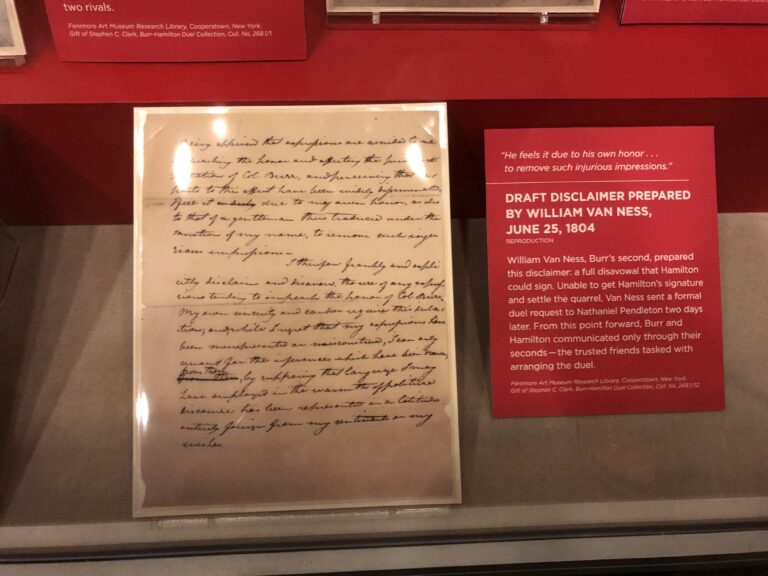 two rivals.
Fenimore Art Museum Research Library, Cooperstown, New York.
Gift of Stephen C. Clark, Burr-Hamilton Duel Collection, Coll. No. 268.1/1.
Being apprised that expressions are ascribed to me
the honor and affecting the
of Col. Burr, and perceiving that
to this effect have been widely disseminated
I feel it due to my own honor, as also
to that of a gentleman thus traduced under the
sanction of my name, to remove such injur
ious impressions —
I therefore frankly and expli
citly disclaim and disavow, the use of any expres
sions tending to impeach the honor of Col Burr.
My own sincerity and candor require this decla
ration; and, while I regret that my expressions have
been misrepresented or misconstrued, I can only
account for the inferences which have been
from them
by supposing that language I may
have employed in the warmth of political
discourse has been represented in a latitude
entirely foreign from my or my
wishes
"He feels it due to his own honor . . .
to remove such injurious impressions."
DRAFT DISCLAIMER PREPARED
BY WILLIAM VAN NESS,
JUNE 25, 1804
REPRODUCTION
William Van Ness, Burr's second, prepared
this disclaimer: a full disavowal that Hamilton
could sign. Unable to get Hamilton's signature
and settle the quarrel, Van Ness sent a formal
duel request to Nathaniel Pendleton two days
later. From this point forward, Burr and
Hamilton communicated only through their
seconds—the trusted friends tasked with
arranging the duel.
Fenimore Art Museum Research Library, Cooperstown, New York.
Gift of Stephen C. Clark, Burr-Hamilton Duel Collection, Coll. No. 268.1/12.